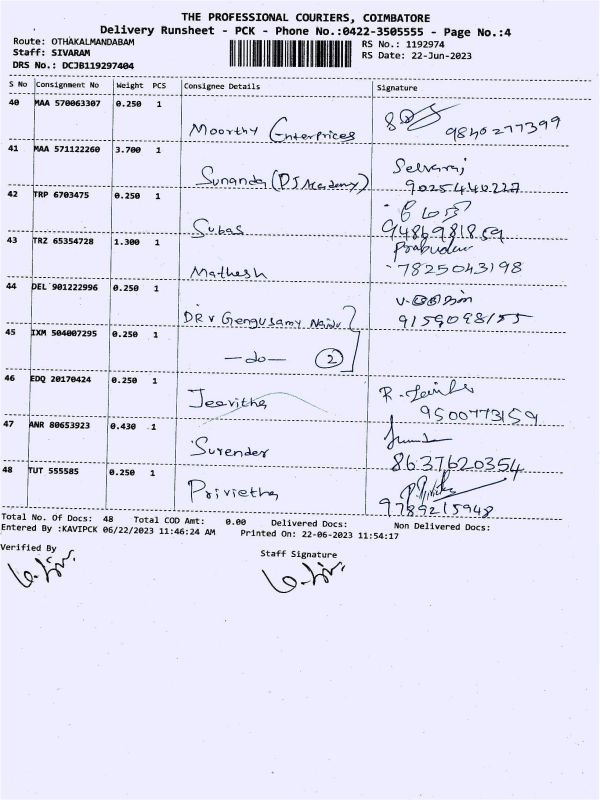 THE PROFESSIONAL COURIERS, COIMBATORE
Delivery Runsheet - PCK - Phone No.:0422-3505555 - Page No.:4
Route: OTHAKALMANDABAM
RS No.: 1192974
Staff: SIVARAM
RS Date: 22-Jun-2023
DRS No.: DCJB119297404
S No Consignment No Weight PCS Consignee Details Signature
40 MAA 570063307 0.250 1
Moorthy Enterprices 9840277399
41 MAA 571122260 3.700 1
Selvaraj
Sunanda (DJ Academy)
42 TRP 6703475 0.250 1
Subas 9486981859
43 TRZ 65354728 1.300 1
Mathesh 7825043198
44 DEL 901222996 0.250 1
DR V Gengusamy Naidu 9159098155
45 IXM 504007295 0.250 1
-do- 2
46 EDQ 20170424 0.250 1
Jeevitha 9500773159
47 ANR 80653923 0.430 1
Surender 8637620354
48 TUT 555585 0.250 1
Privietha 9789215948
Total No. Of Docs: 48 Total COD Amt: 0.00 Delivered Docs: Non Delivered Docs:
Entered By :KAVIPCK 06/22/2023 11:46:24 AM Printed On: 22-06-2023 11:54:17
Verified By
Staff Signature